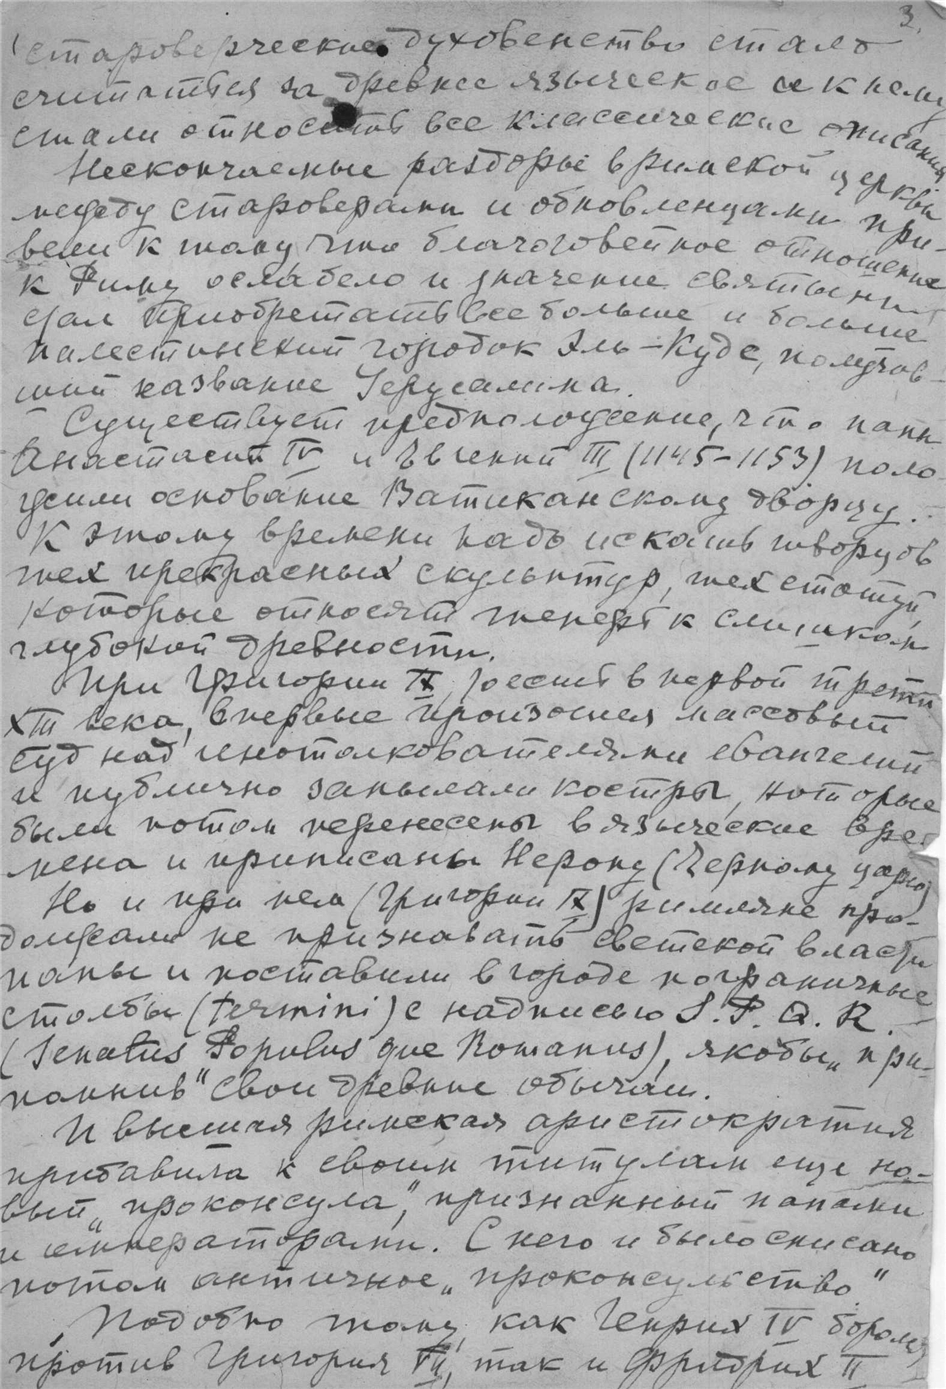 3.
староверческое духовенство стало
считаться за древнее языческое и к нему
стали относить все классические описания
Нескончаемые раздоры в римской церкви
между староверами и обновленцами при-
вели к тому, что благоговейное отношение
к Риму ослабело и значение святыни
стал приобретать все больше и больше
палестинский городок Эль-Кудс, получив-
ший название Иерусалима.
Существует предположение, что папы
Анастасий IV и Евгений III (1145-1153) поло
жили основание Ватиканскому дворцу.
К этому времени надо искать творцов
тех прекрасных скульптур, тех статуй,
которые относят теперь к слишком
глубокой древности.
При Григории IX, то есть в первой трети
XIII века, впервые произошел массовый
суд над инотолкователями евангелий
и публично запылали костры, которые
были потом перенесены в языческие вре
мена и приписаны Нерону (Черному царю)
Но и при нем (Григории IX) римляне про-
должали не признавать светской власти
папы и поставили в городе пограничные
столбы (termini) с надписью S. P. Q. R.
(Senatus Populus que Romanus), якобы „при-
помнив" свои древние обычаи.
И высшая римская аристократия
прибавила к своим титулам еще но-
вый „проконсула", признанный папами
и императорами. С него и было списано
потом античное „проконсульство"
Подобно тому, как Генрих IV боролся
против Григория VII, так и Фридрих II